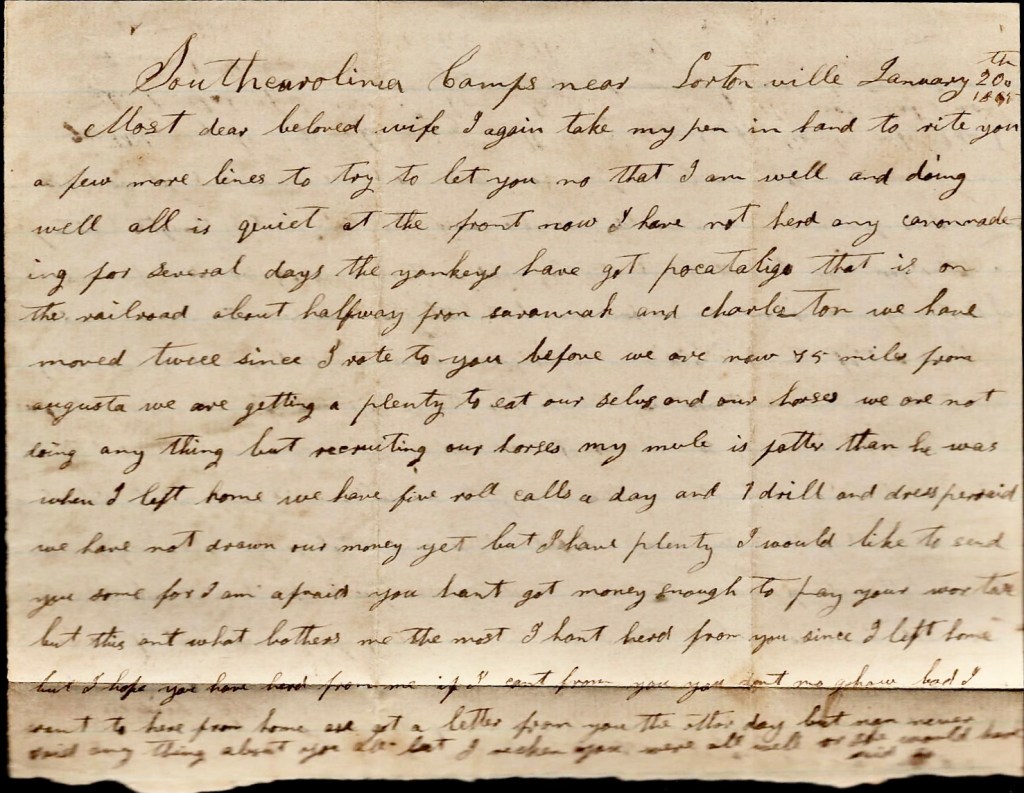 Southcarolina Camps near Lorton ville January 20th 1865
Most dear beloved wife I again take my pen in hand to rite you
a few more lines to try to let you no that I am well and doing
well all is qeuiet at the front now I have not herd any canonnade
ing for several days the yankeys have got pocataligo that is on
the railroad about halfway from savannah and charleston we have
moved twice since I rote to you before we are now 75 miles from
augusta we are getting a plenty to eat our selvs and our horses we are not
doing any thing but recruiting our horses my mule is fatter than he was
when I left home we have five roll calls a day and 1 drill and dress peraid
we have not drawn our money yet but I have plenty I would like to send
you some for I am afraid you hant got money enough to pay your wor tax
but this ant what bothers me the most I hant herd from you since I left home
but I hope you have herd from me if I cant from you you dont no how bad I
want to here from home got a letter from you the other day but never
said any thing about you all but I recken you were all well or she would have
said so